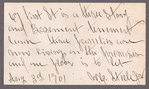 67 first St is a three Story
and Basement tenement
house three families are
now living on the premises
and one floor is to let
Aug 3rd 1901